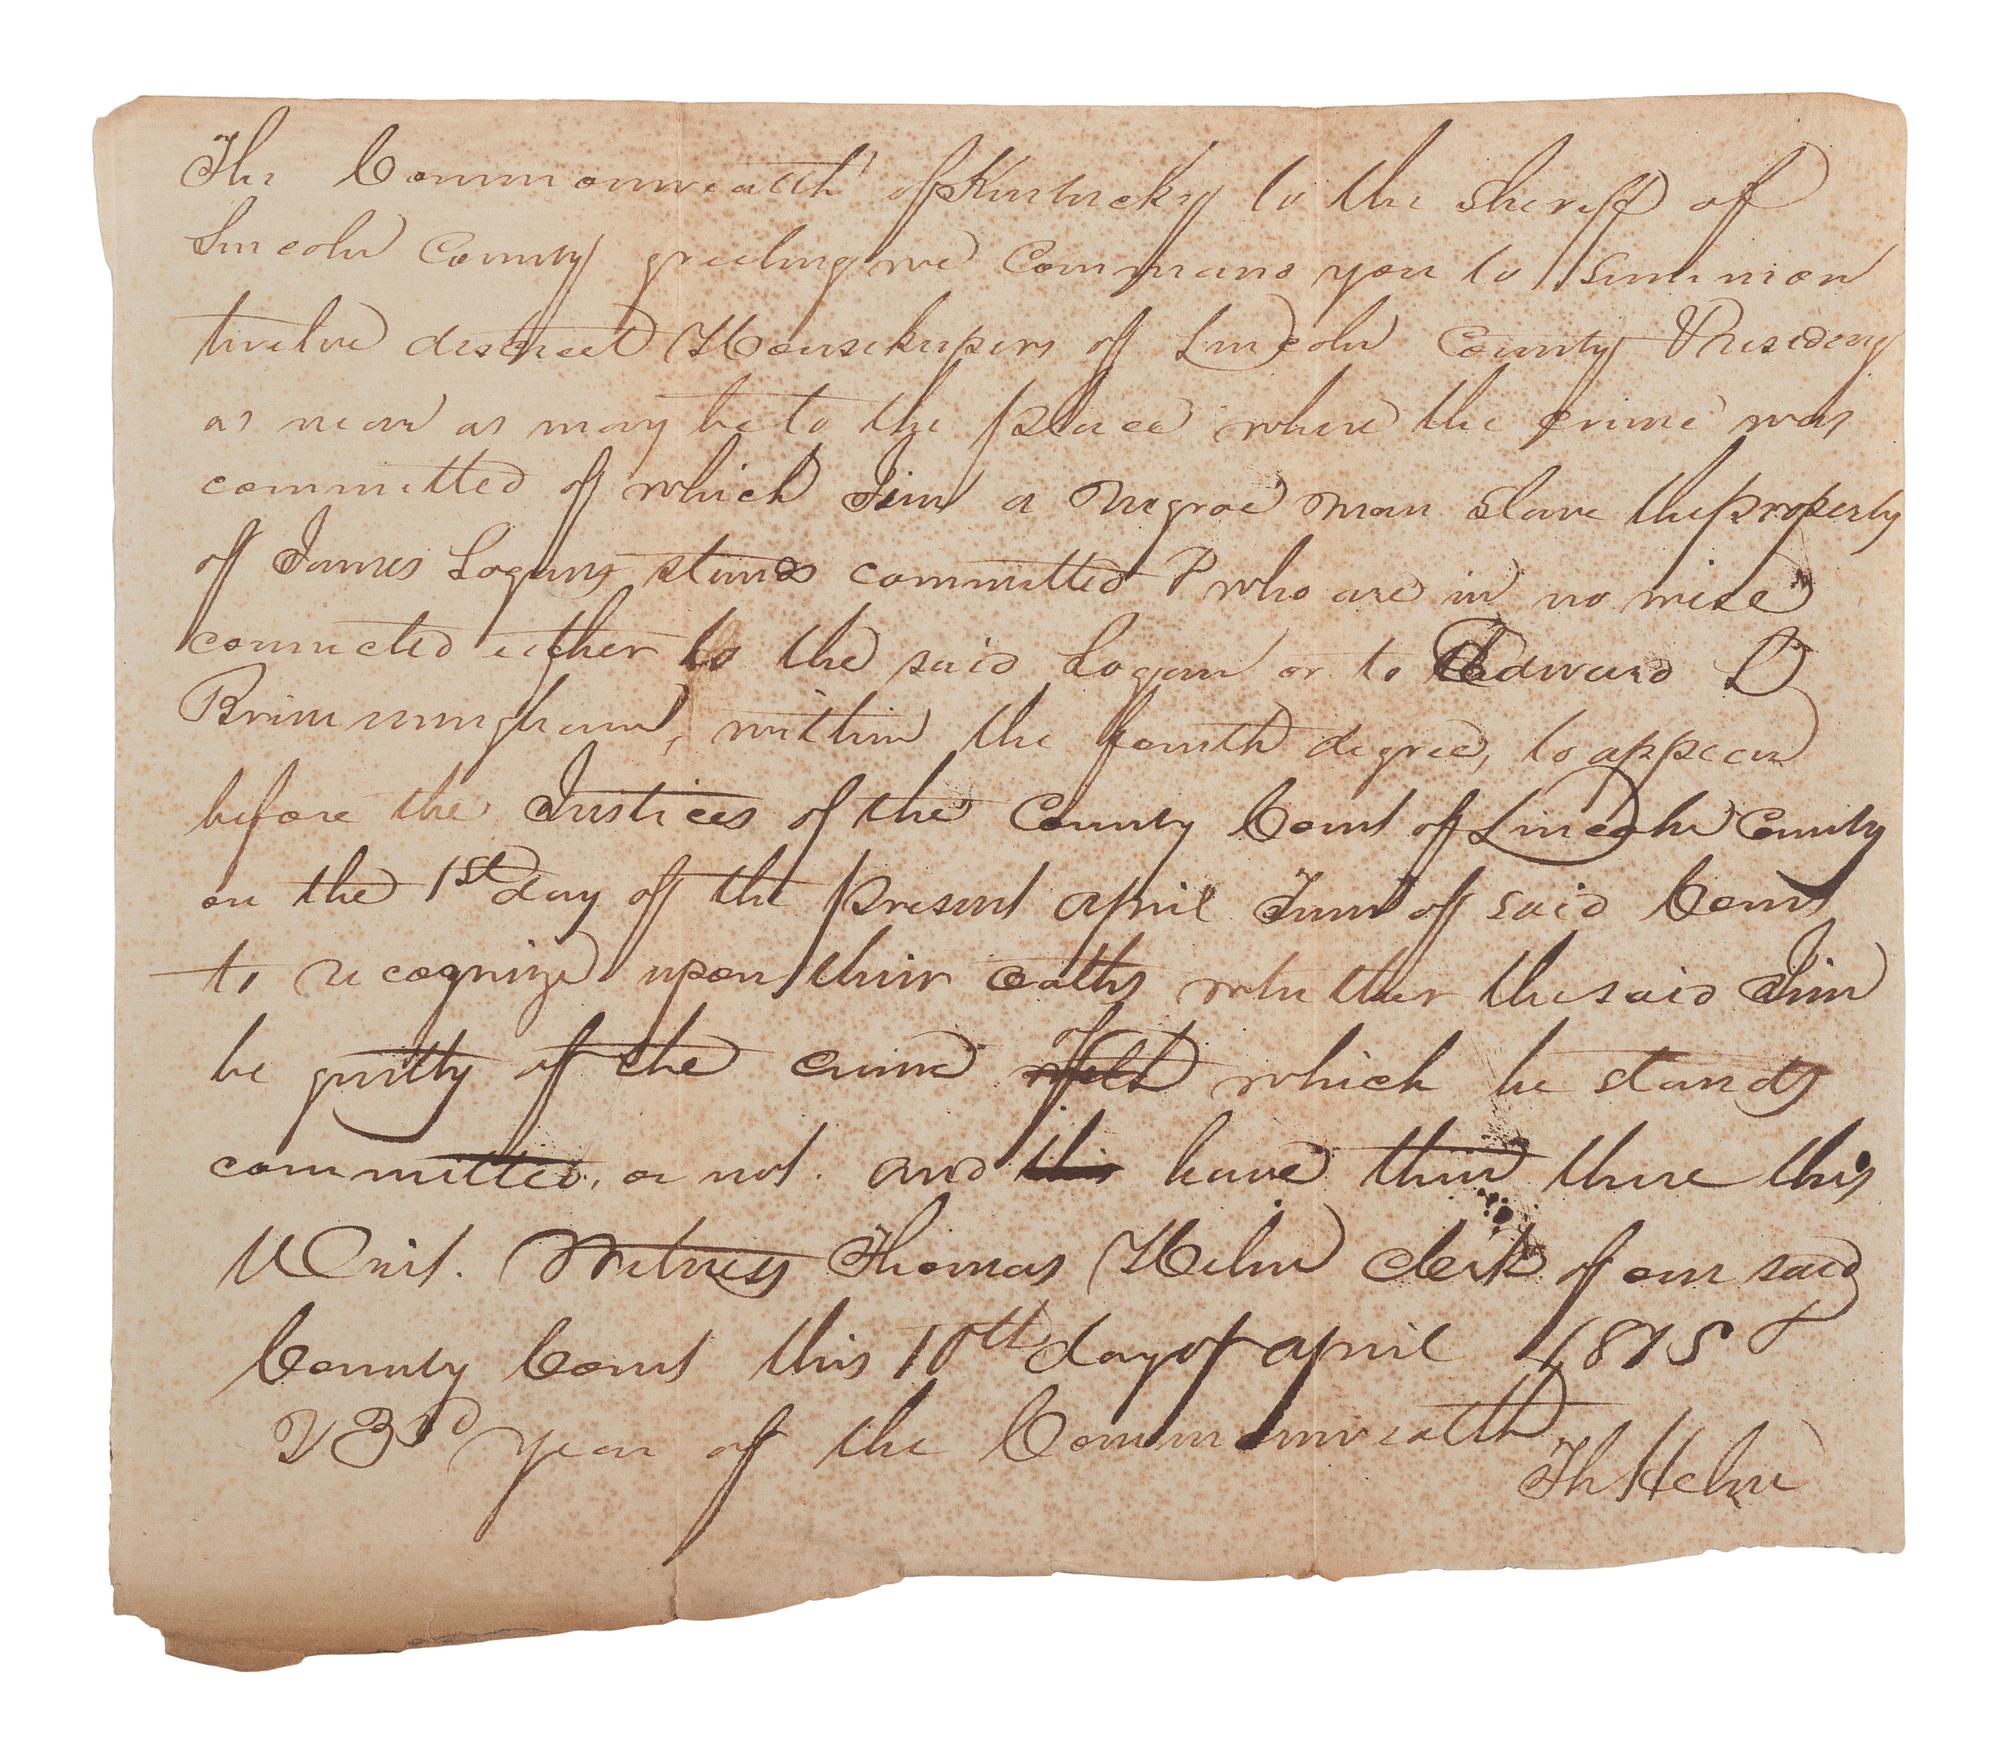 The Commonwealth of Kentucky to the Sheriff of
Lincoln County greeting we Command you to summon
twelve discreet Housekeepers of Lincoln County Residing
as near as may be to the place where the crime was
committed of which Jim a Negroe man slave the property
of James Logans stands committed & who are in no wise
connected either to the said Logan or to Edward D
Brimmingham, within the fourth degree, to appear
before the Justices of the County Court of Lincoln County
on the 1st day of the present April Term of said Court
to recognize upon their oaths whether the said Jim
be guilty of the crime which he stands
committed, or not. and have them there this
Writ. Witness Thomas Helm clerk of our said
County Court this 10th day of april 1815 &
23d year of the Commonwealth
Th Helm